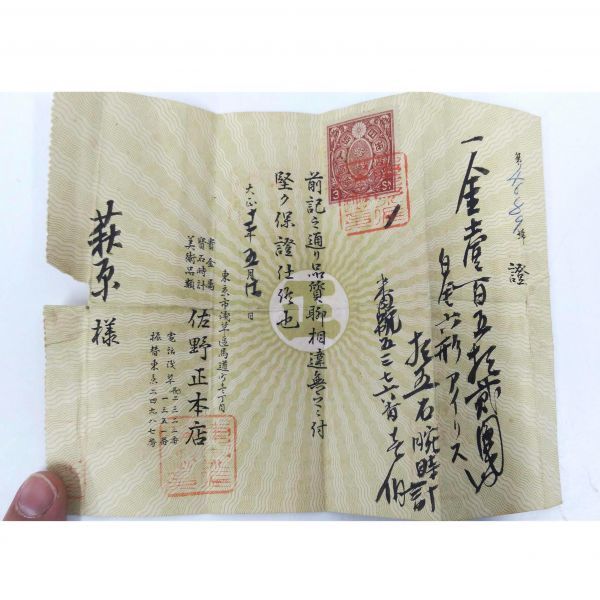 第
號
證
一金壹百五拾貳圓也
白金六形アイリス
拾五石腕時計
番號五二七六番壱個
前記之通り品質聊相違無之ニ付
堅ク保證仕候也
大正十年五月 日
東京市浅草區馬道町七丁目
貴金屬
寶石時計
美術品類
佐野正本店
電話浅草 二三二二番
一三五一番
振替東京二四九八七番
萩原様